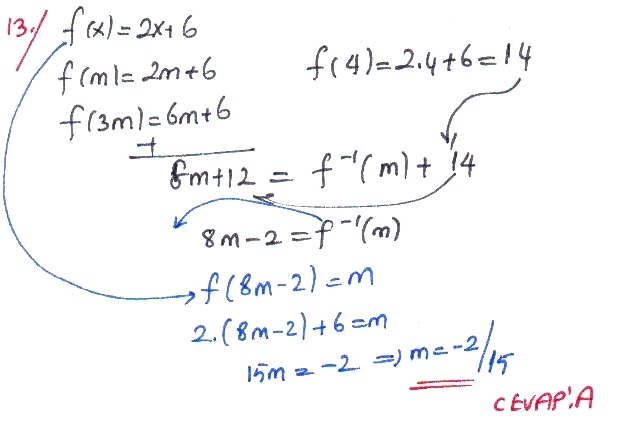 13./ f(x)=2x+6
f(m)=2m+6
f(4)=2.4+6=14
f(3m)=6m+6
+
8m+12 = f⁻¹(m)+14
8m-2=f⁻¹(m)
f(8m-2)=m
2.(8m-2)+6=m
15m=-2 => m=-2/15
CEVAP:A